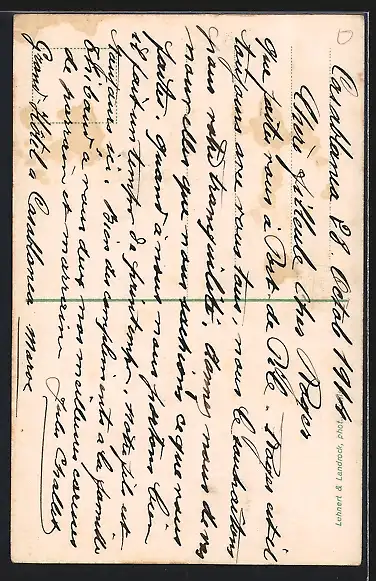 Casablanca 28 Octob 1914
Chère filleule Cher Roger
que faite vous à Port de Pilé. Roger est il
toujours avec vous tous, nous le souhaitons
pour votre tranquilité, donnez nous de vos
nouvelles que nous sachions ce que vous
faites quand à nous nous sommes bien
il fait un temps de printemps, notre fils est
toujours ici. Bien des compliments à la famille
Ed. baud à vous deux nos meilleures caresses
de parrain et marraine Jules
Grand Hôtel à Casablanca Maroc
Lehnert & Landrock, phot.